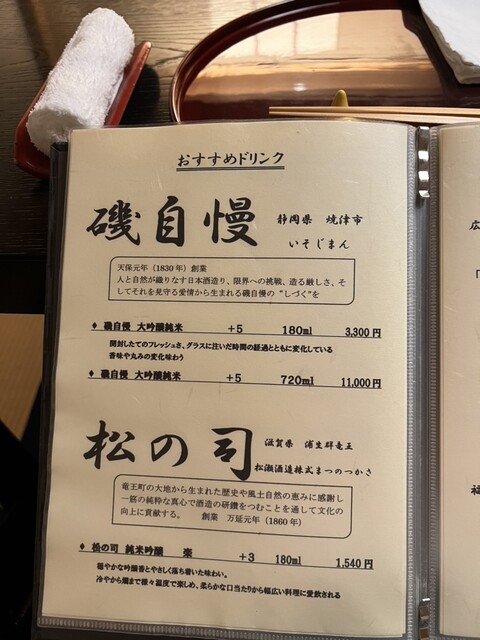 おすすめドリンク
磯自慢 静岡県 焼津市
いそじまん
天保元年（1830年）創業
人と自然が織りなす日本酒造り、限界への挑戦、造る厳しさ、そ
してそれを見守る愛情から生まれる磯自慢の“しづく”を
♦ 磯自慢 大吟醸純米 +5 180ml 3,300円
開封したてのフレッシュさ、グラスに注いだ時間の経過とともに変化している
香味や丸みの変化味わう
♦ 磯自慢 大吟醸純米 +5 720ml 11,000円
松の司 滋賀県 浦生群竜王
松瀬酒造株式まつのつかさ
竜王町の大地から生まれた歴史や風土自然の恵みに感謝し
一筋の純粋な真心で酒造の研鑽をつむことを通して文化の
向上に貢献する。 創業 万延元年（1860年）
♦ 松の司 純米吟醸 楽 +3 180ml 1,540円
穏やかな吟醸香とやさしく落ち着いた味わい。
冷やから燗まで様々温度で楽しめ、柔らかな口当たりから幅広い料理に愛飲される
広